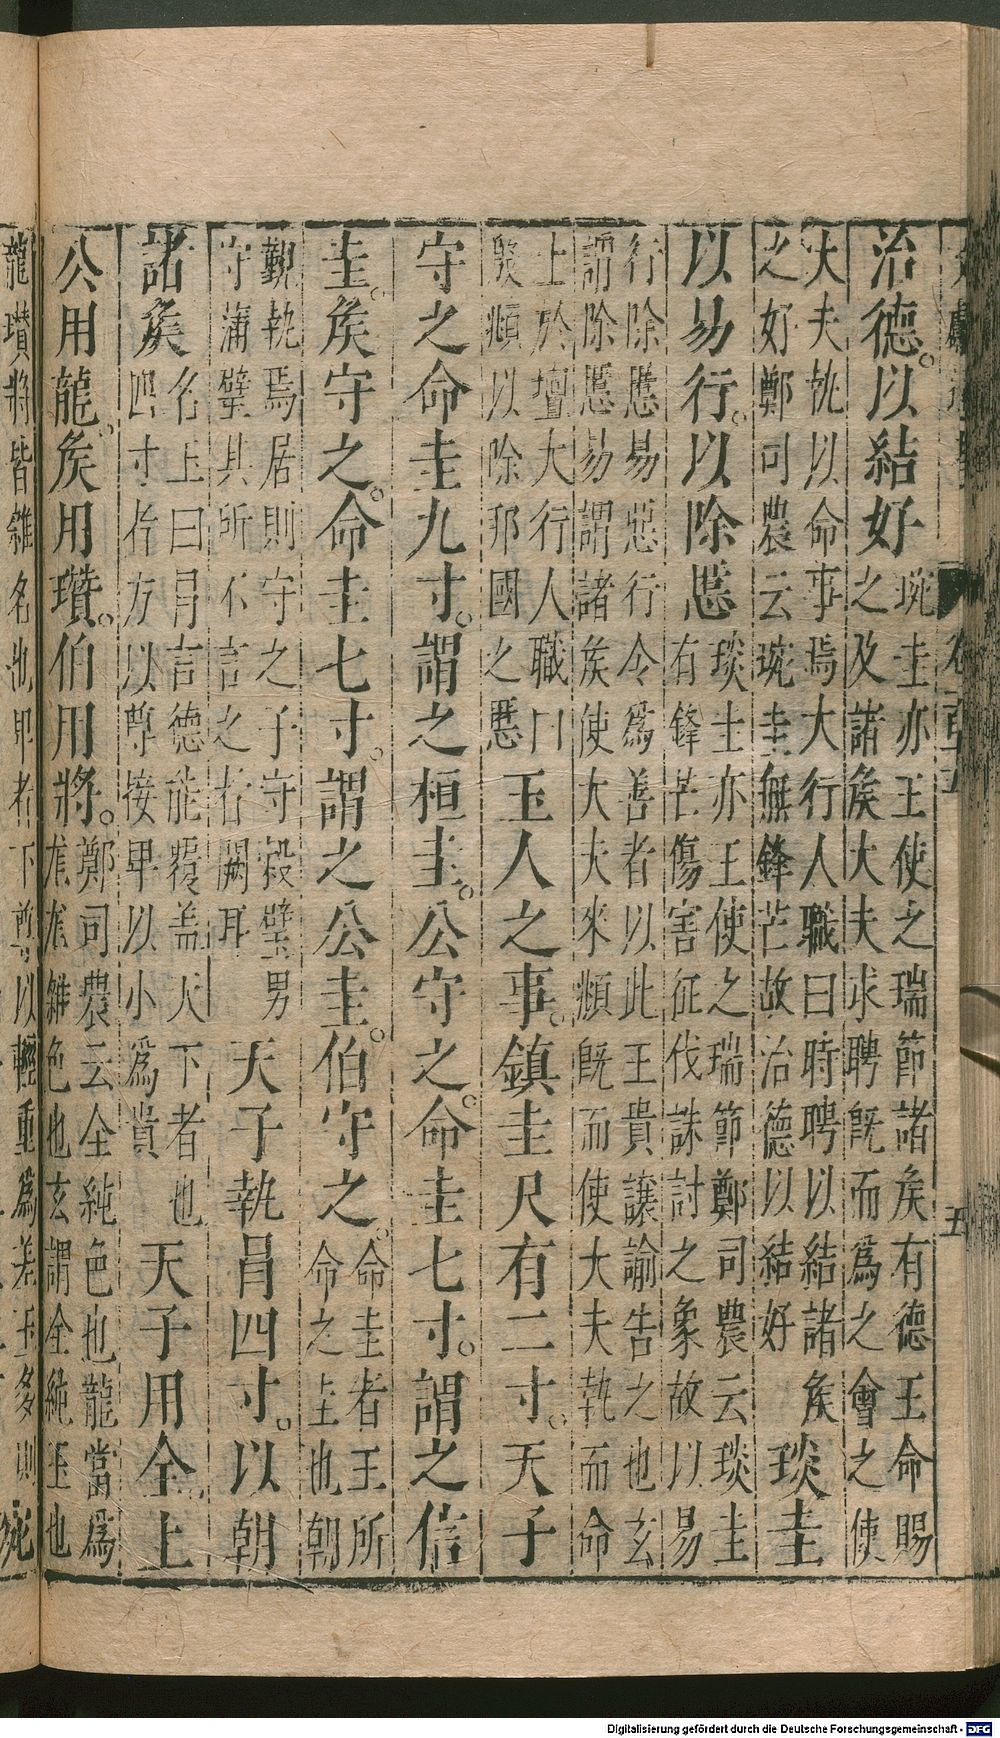 治德。以結好琬圭亦王使之瑞節諸矦有德王命賜
之及諸矦大夫求聘旣而爲之會之使
大夫執以命事焉大行人職曰時聘以結諸矦
之好鄭司農云琬圭無鋒芒故治德以結好
琰圭
以易行。以除慝琰圭亦王使之瑞節鄭司農云琰圭
有鋒芒傷害征伐誅討之象故以易
行除慝易惡行令爲善者以此王貴讓諭告之也玄
謂除慝易謂諸矦使大夫來頫旣而使大夫執而命
上於壇大行人職曰
殷頫以除邦國之慝
玉人之事。鎮圭尺有二寸。天子
守之命圭九寸。謂之桓圭。公守之。命圭七寸。謂之信
圭。矦守之。命圭七寸。謂之公圭。伯守之。命圭者王所
命之圭也朝
覲執焉居則守之子守穀璧男
守蒲璧其所不言之者闕耳
天子執冒四寸。以朝
諸矦名玉曰冒言德能覆盖天下者也
四寸者方以尊接卑以小爲貴
天子用全上
公用龍。矦用瓚。伯用將。鄭司農云全純色也龍當爲
尨尨雜色也玄謂全純玉也
龍瓚將皆雜名也卑者下尊以輕重爲差玉多則
卷
五
Digitalisierung gefördert durch die Deutsche Forschungsgemeinschaft - DFG